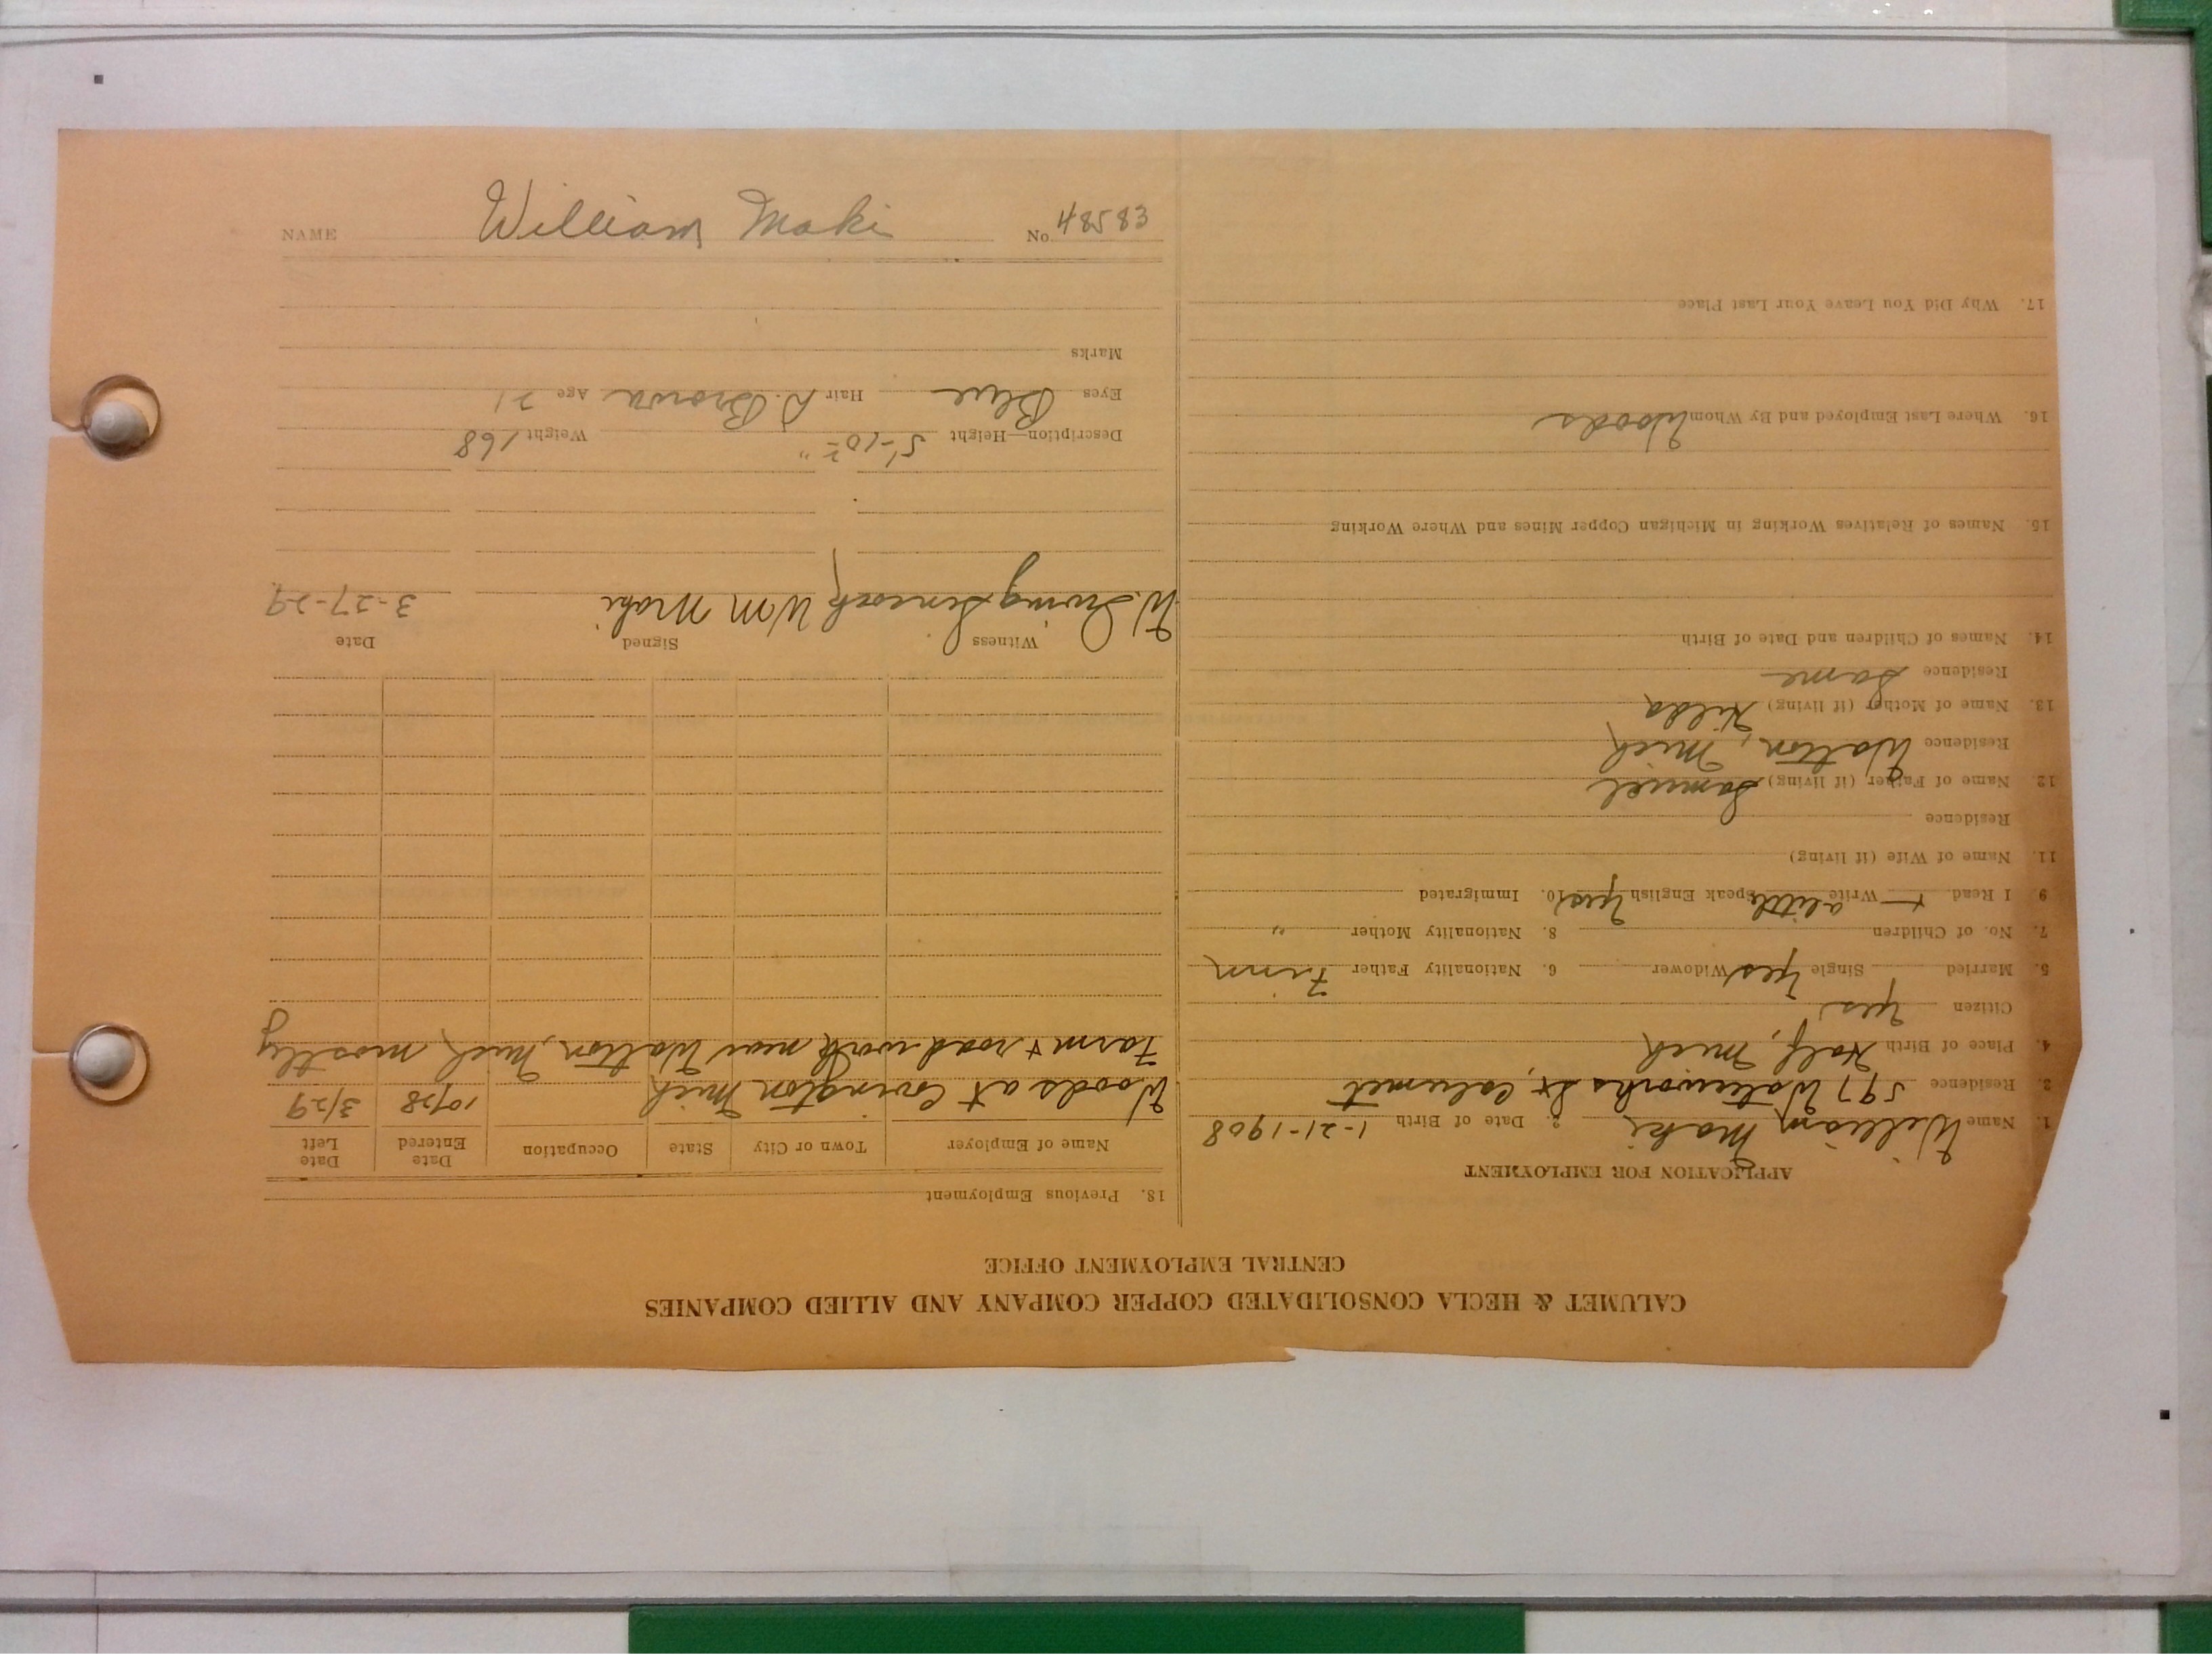 CALUMET & HECLA CONSOLIDATED COPPER COMPANY AND ALLIED COMPANIES
CENTRAL EMPLOYMENT OFFICE
APPLICATION FOR EMPLOYMENT
1. Name William Maki 2. Date of Birth 1-21-1908
3. Residence 597 Waterworks St, Calumet
4. Place of Birth Mich
Citizen Yes
5. Married Single Yes Widower 6. Nationality Father Finn
7. No. of Children 8. Nationality Mother "
9 I Read + Write a little Speak English Yes 10. Immigrated
11. Name of Wife (if living)
Residence
12. Name of Father (if living) Samuel
Residence Watton, Mich
13. Name of Mother (if living) Hilda
Residence Same
14. Names of Children and Date of Birth
15. Names of Relatives Working in Michigan Copper Mines and Where Working
16. Where Last Employed and By Whom Woods
17. Why Did You Leave Your Last Place
18. Previous Employment
Name of Employer Town or City State Occupation Date Entered Date Left
Woods at Covington Mich 10/28 3/29
Farm & road work near Watton, Mich mostly
Witness Signed Date
W. Irving Wm Maki 3-27-29
Description—Height 5'-10½" Weight 168
Eyes Blue Hair D. Brown Age 21
Marks
NAME William Maki No. 48583